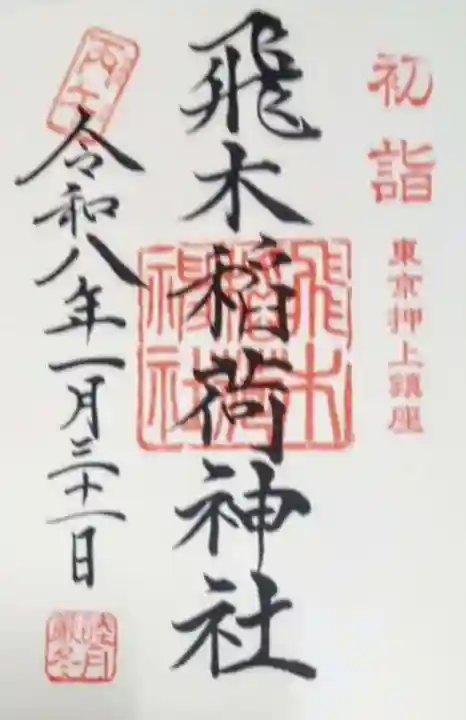 初詣
東京押上鎮座
飛木稲荷神社
飛木稲荷神社
令和八年一月三十一日
睦月
厳冬